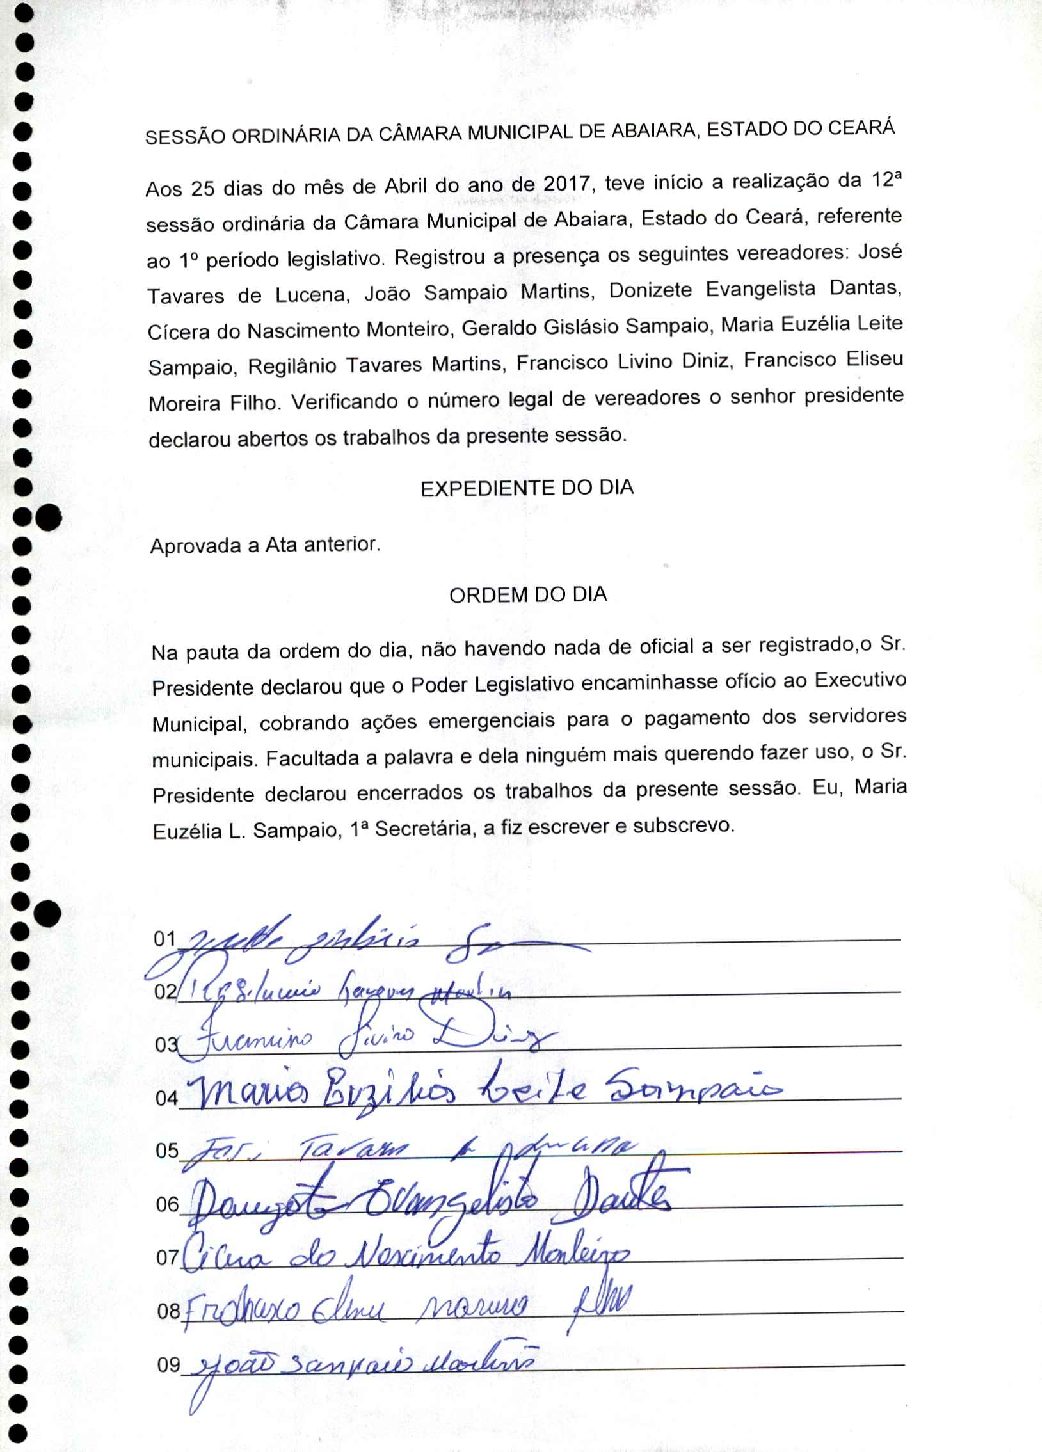 SESSÃO ORDINÁRIA DA CÂMARA MUNICIPAL DE ABAIARA, ESTADO DO CEARÁ
Aos 25 dias do mês de Abril do ano de 2017, teve início a realização da 12ª
sessão ordinária da Câmara Municipal de Abaiara, Estado do Ceará, referente
ao 1º período legislativo. Registrou a presença os seguintes vereadores: José
Tavares de Lucena, João Sampaio Martins, Donizete Evangelista Dantas,
Cícera do Nascimento Monteiro, Geraldo Gislásio Sampaio, Maria Euzélia Leite
Sampaio, Regilânio Tavares Martins, Francisco Livino Diniz, Francisco Eliseu
Moreira Filho. Verificando o número legal de vereadores o senhor presidente
declarou abertos os trabalhos da presente sessão.
EXPEDIENTE DO DIA
Aprovada a Ata anterior.
ORDEM DO DIA
Na pauta da ordem do dia, não havendo nada de oficial a ser registrado,o Sr.
Presidente declarou que o Poder Legislativo encaminhasse ofício ao Executivo
Municipal, cobrando ações emergenciais para o pagamento dos servidores
municipais. Facultada a palavra e dela ninguém mais querendo fazer uso, o Sr.
Presidente declarou encerrados os trabalhos da presente sessão. Eu, Maria
Euzélia L. Sampaio, 1ª Secretária, a fiz escrever e subscrevo.
01
02
03 Livino Diniz
04 Maria Euzélia Leite Sampaio
05 Tavares
06 Evangelista Dantas
07 Cicera do Nascimento Monteiro
08 filho
09 João Sampaio Martins